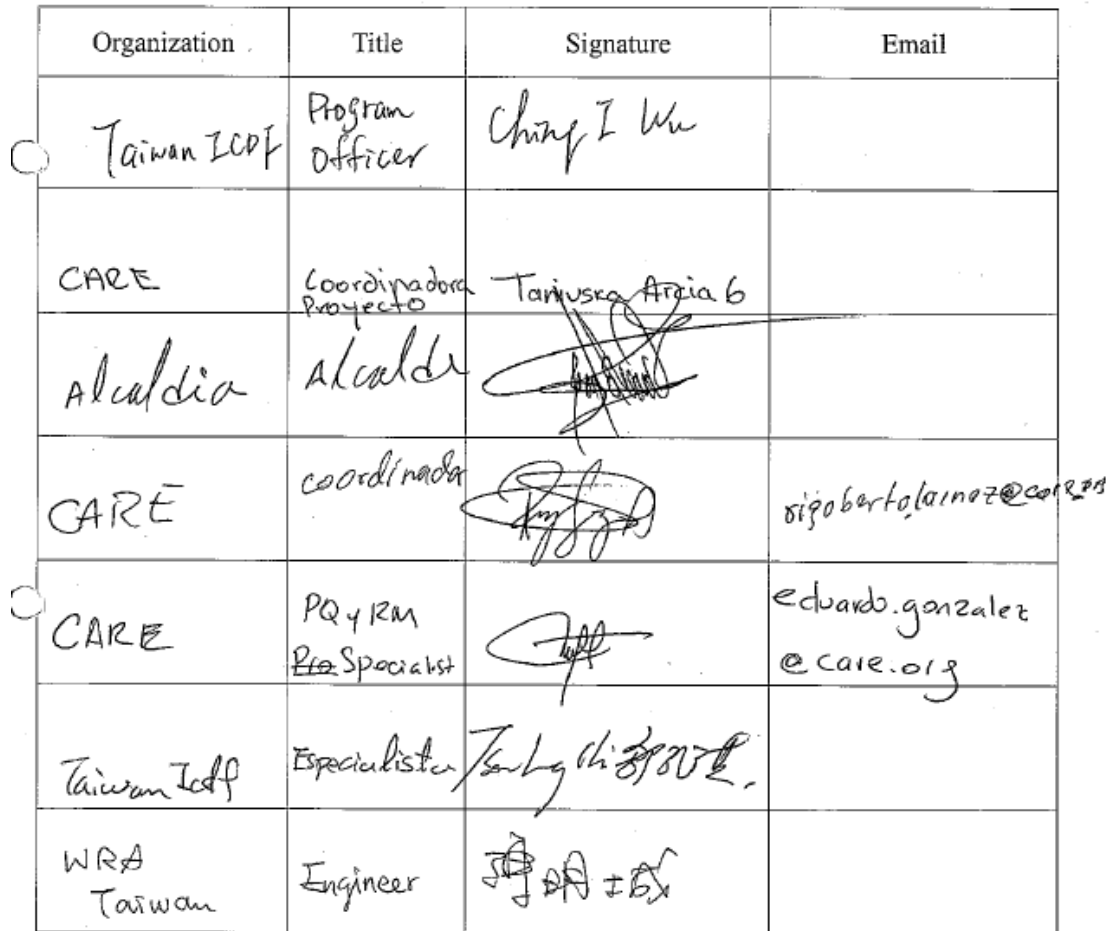 Organization Title Signature Email
Taiwan ICDF Program Officer Ching I Wu
CARE Coordinadora Proyecto Taniuska Arcia G
Alcaldia Alcalde
CARE coordinador rigoberto.lainez@care.org
CARE PQ y RM Pro Specialist eduardo.gonzalez
@care.org
Taiwan Icdf Especialista
WRA Engineer
Taiwan